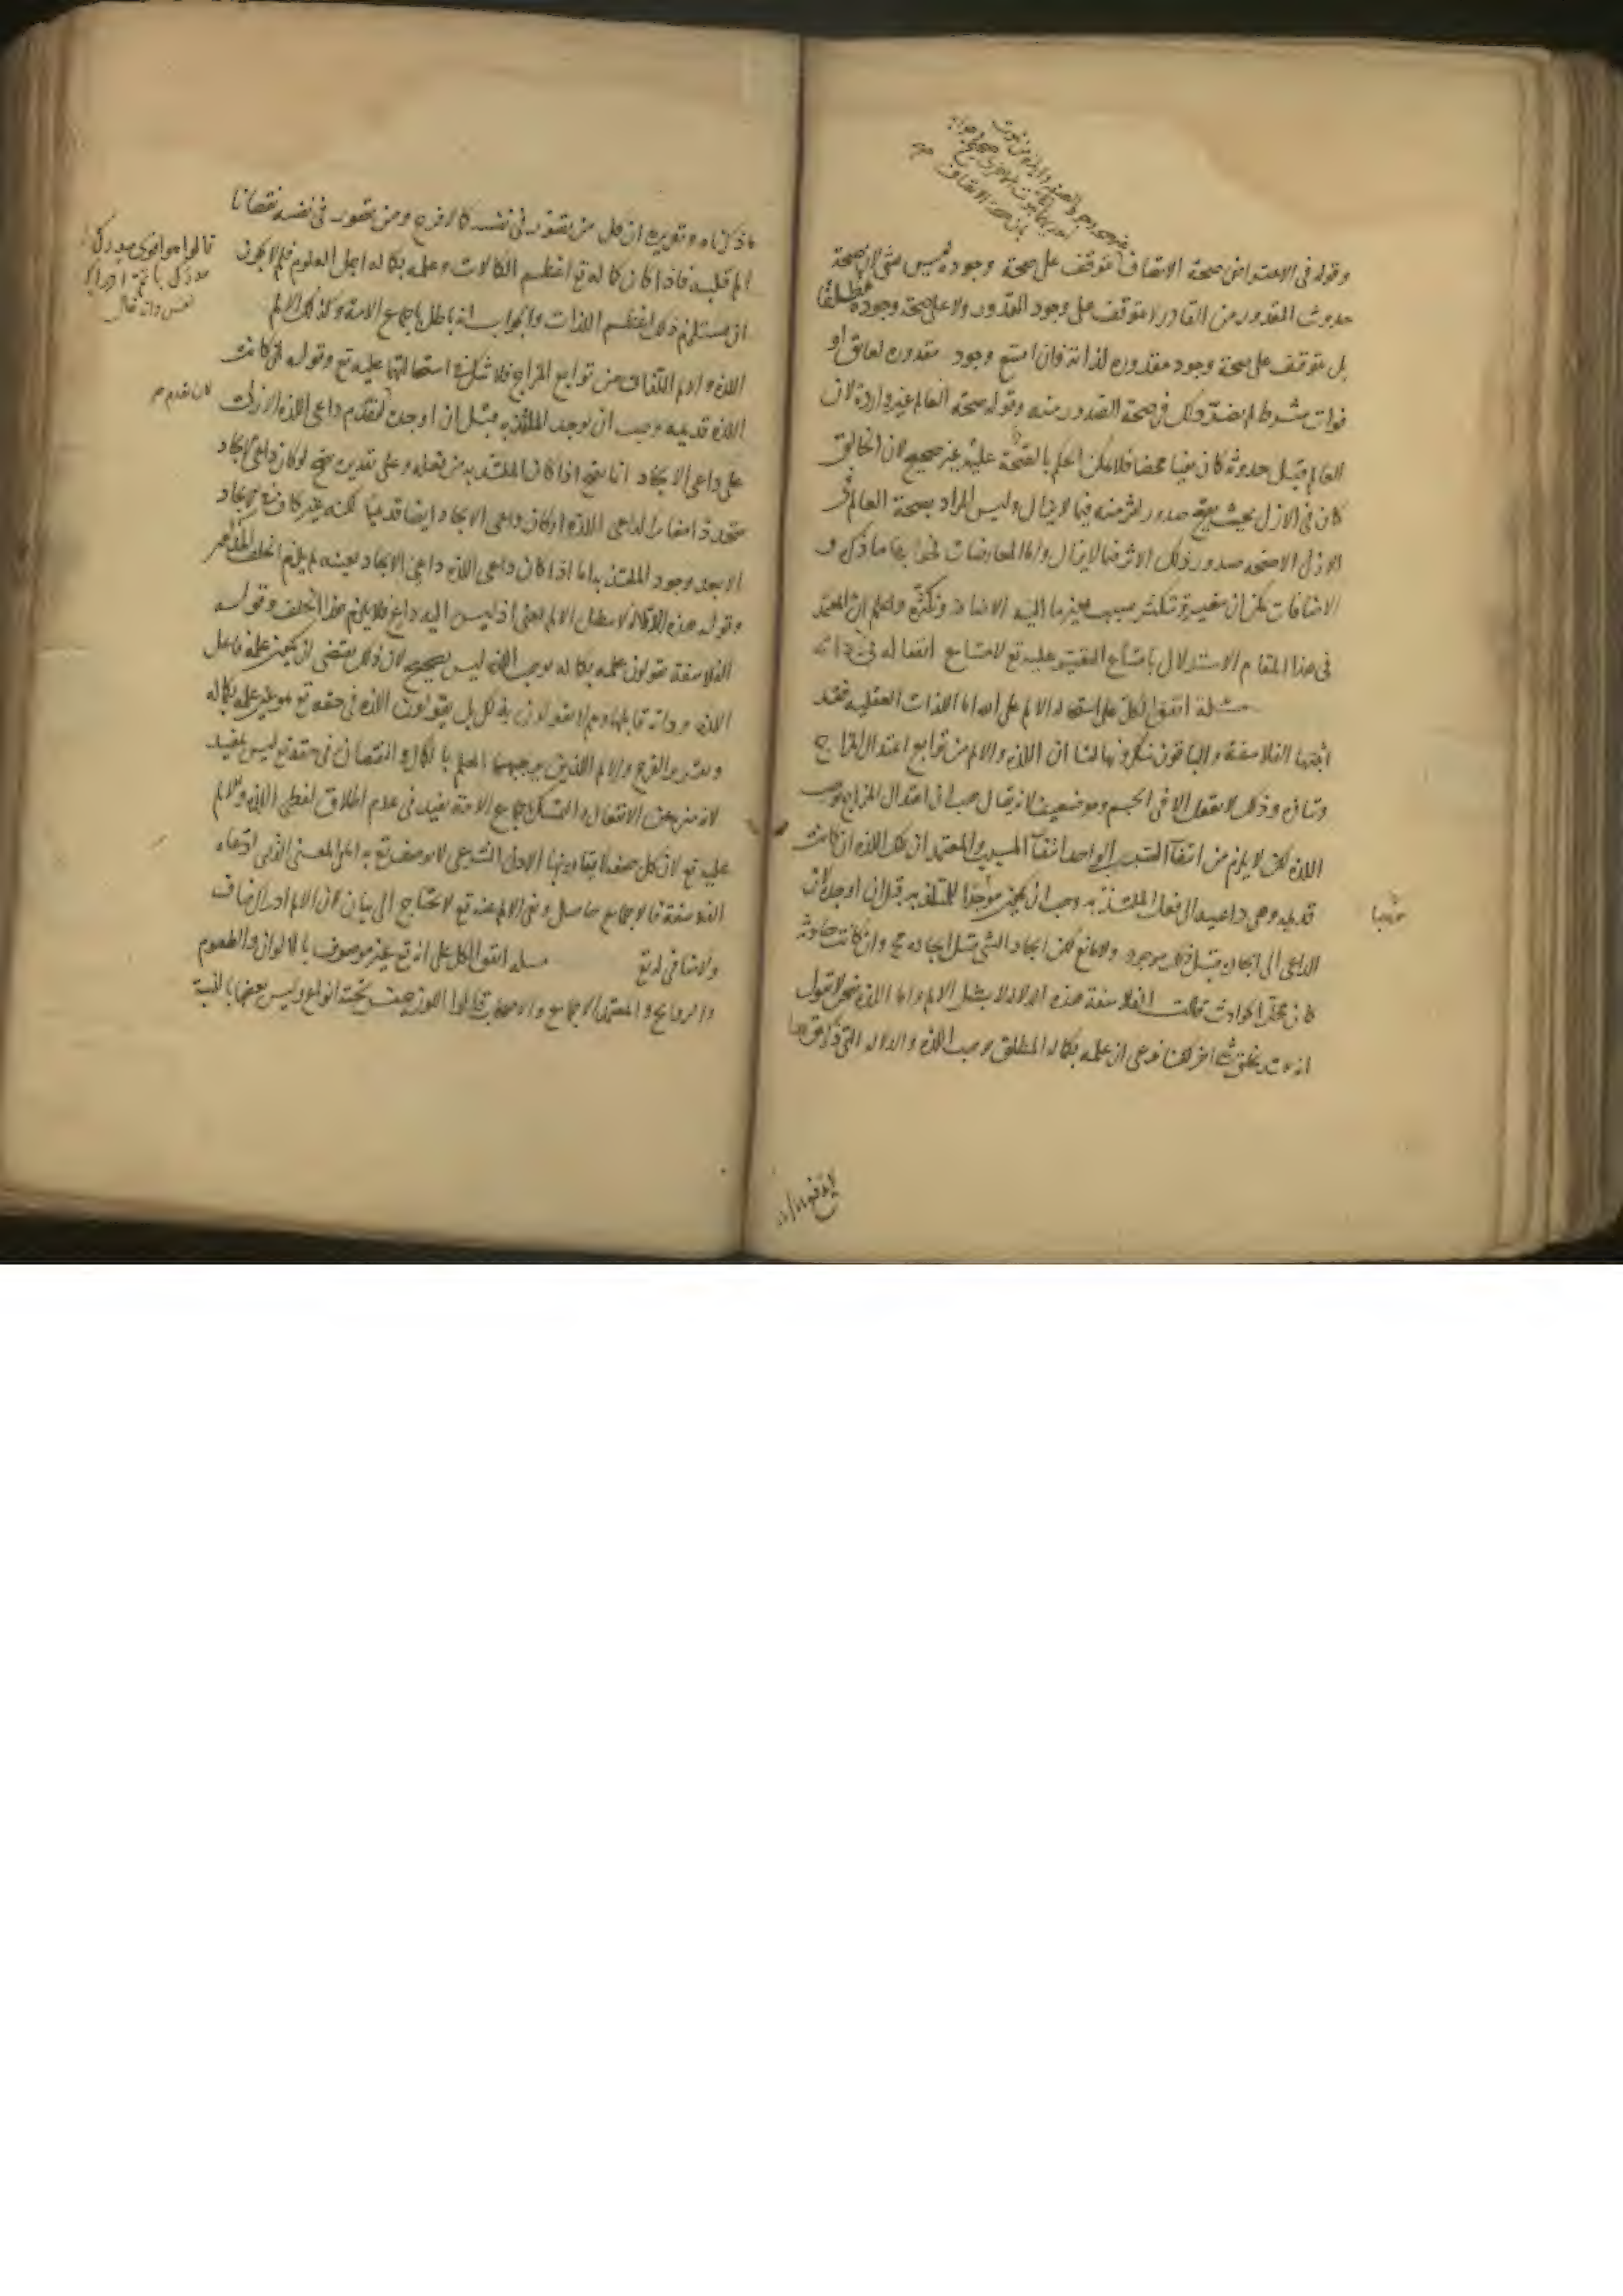 وقوله في الاعتراض صحة الاتصاف تتوقف على صحة وجوده ليس بشيء لان صحة
حدوث المقدور من القادر لا تتوقف على وجود المقدور ولا على صحة وجوده مطلقا
بل تتوقف على صحة وجود مقدوره لذاته فان امتنع وجود مقدوره لعائق او
فوات شرط لم يضر ذلك في صحة الصدور منه وقوله صحة العالم غير واردة لان
العالم قبل حدوثه كان نفيا محضا فلا يمكن الحكم بالصحة عليه غير صحيح لان الخالق
كان في الازل بحيث يصح صدور اثر منه فيما لا يزال وليس المراد بصحة العالم في
الازل الا صحة صدور ذلك الاثر فيما لا يزال واما المعارضات فجوابها ما ذكره و
الاضافات يمكن ان تتغير وتتكثر بسبب تغير ما اليه الاضافة وتكثره واعلم ان المعتمد
في هذا المقام الاستدلال بامتناع التغير عليه تع لامتناع انفعاله في ذاته
مسئلة اتفق الكل على استحالة الالم على الله اما اللذات العقلية فقد
اثبتها الفلاسفة والباقون ينكرونها لنا ان اللذة والالم من توابع اعتدال المزاج
وتنافره وذلك لا يعقل الا في الجسم وهو ضعيف لانه يقال هب ان اعتدال المزاج يوجب
اللذة لكن لا يلزم من انتفاء السبب الواحد انتفاء المسبب والمعتمد ان تلك اللذة ان كانت
قديمة وهي داعية الى فعل الملتذ به وجب ان يكون موجدا للملتذ به قبل ان اوجده لان
الداعي الى ايجاده قبل ذلك موجود ولا مانع لكن ايجاد الشيء قبل ايجاده مح وان كانت حادثة
كان محل الحوادث قالت الفلاسفة هذه الدلالة لا تبطل الالم واما اللذة فنحن لا نقول
انه يلتذ بخلق شيء اخر لكنا ندعي ان علمه بكماله المطلق يوجب اللذة والدلالة التي ذكرتموها
ما ذكرناه وتقريره ان كل من تصور في نفسه كمالا فرح ومن تصور في نفسه نقصانا
الم قلبه فاذا كان كماله تع اعظم الكمالات وعلمه بكماله اجل العلوم فلم لا يجوز
ان يستلزم ذلك اعظم اللذات والجواب انه باطل باجماع الامة وكذلك الالم
اللذة والالم اللتان من توابع المزاج فلا شك في استحالتهما عليه تع وقوله ان كانت
اللذة قديمة وجب ان يوجد الملتذ به قبل ان اوجده لتقدم داعي اللذة الازلية
على داعي الايجاد انما يصح اذا كان الملتذ به من فعله وعلى تقدير صح لو كان داعي الايجاد
متجددا مغايرا لداعي اللذة او كان داعي الايجاد ايضا قديما لكنه غير كاف في الايجاد
الا بعد وجود الملتذ به اما اذا كان داعي اللذة داعي الايجاد بعينه لم يلزم الخلف المذكور
وقوله هذه الدلالة لا تبطل الالم يعني اذ ليس اليه داع فلا يلزم هذا الخلف وقوله
الفلاسفة يقولون علمه بكماله يوجب اللذة ليس بصحيح لان ذلك يقتضي ان يكون علمه فاعل
اللذة وذاته قابلها وهم لا يقولون بذلك بل يقولون اللذة في حقه تع هو عين علمه بكماله
وتفسير الفرح والالم اللذين يوجبهما العلم بالكمال والنقصان في حقه تع ليس بمفيد
لانه منزه عن الانفعال والتمسك باجماع الامة يفيد في عدم اطلاق لفظي اللذة والالم
عليه تع لان كل صفة لا يقارنها الاذن الشرعي لا يوصف تع بها اما المعنى الذي ادعاه
الفلاسفة فالاجماع حاصل ونفي الالم عنه تع لا يحتاج الى بيان لان الالم ادراك مناف
ولا منافي له تع مسئلة اتفق الكل على انه تع غير موصوف بالالوان والطعوم
والروايح والمعتمد الاجماع والاصحاب قالوا اللون جنس تحته انواع وليس بعضها بالنسبة